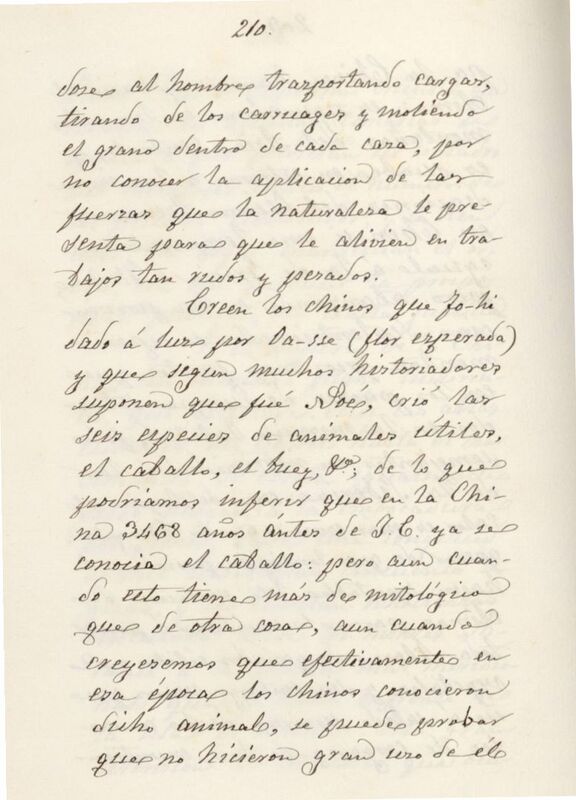 210.
dose al hombre trasportando cargas,
tirando de los carruages y moliendo
el grano dentro de cada casa, por
no conocer la aplicacion de las
fuerzas que la naturaleza le pre-
senta para que le alivien en tra-
bajos tan rudos y pesados.
Creen los chinos que Fo-hi
dado á luz por Oa-sse (flor esperada)
y que segun muchos historiadores
suponen que fué Noé, crió las
seis especies de animales útiles,
el caballo, el buey, &ª; de lo que
podriamos inferir que en la Chi-
na 3468 años ántes de J.C. ya se
conocia el caballo: pero aun cuan-
do esto tiene más de mitológico
que de otra cosa, aun cuando
creyesemos que efectivamente en
esa época los chinos conocieron
dicho animal, se puede probar
que no hicieron gran uso de él